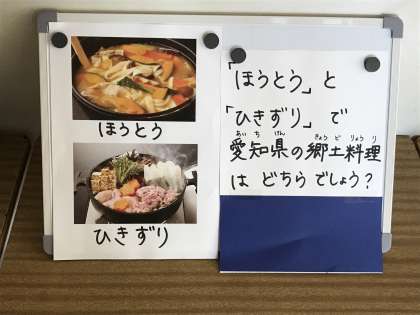 ほうとう
ひきずり
「ほうとう」と
「ひきずり」で
愛知県の郷土料理
あいちけん きょうどりょうり
は どちらでしょう?